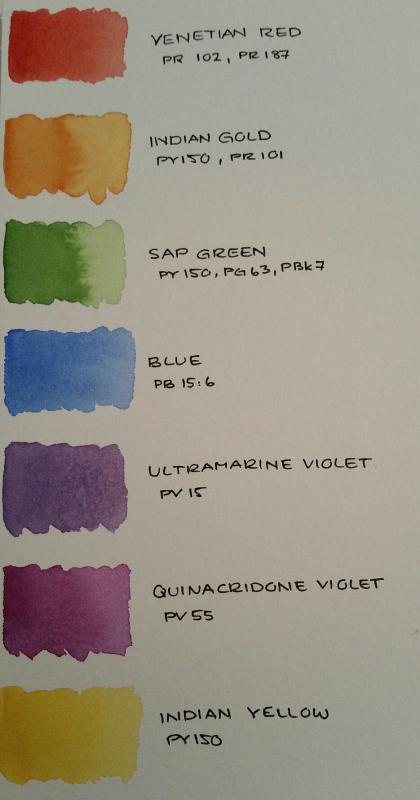 VENETIAN RED
PR 102, PR187
INDIAN GOLD
PY150, PR101
SAP GREEN
PY150, PG63, PBk7
BLUE
PB 15:6
ULTRAMARINE VIOLET
PV 15
QUINACRIDONE VIOLET
PV 55
INDIAN YELLOW
PY150